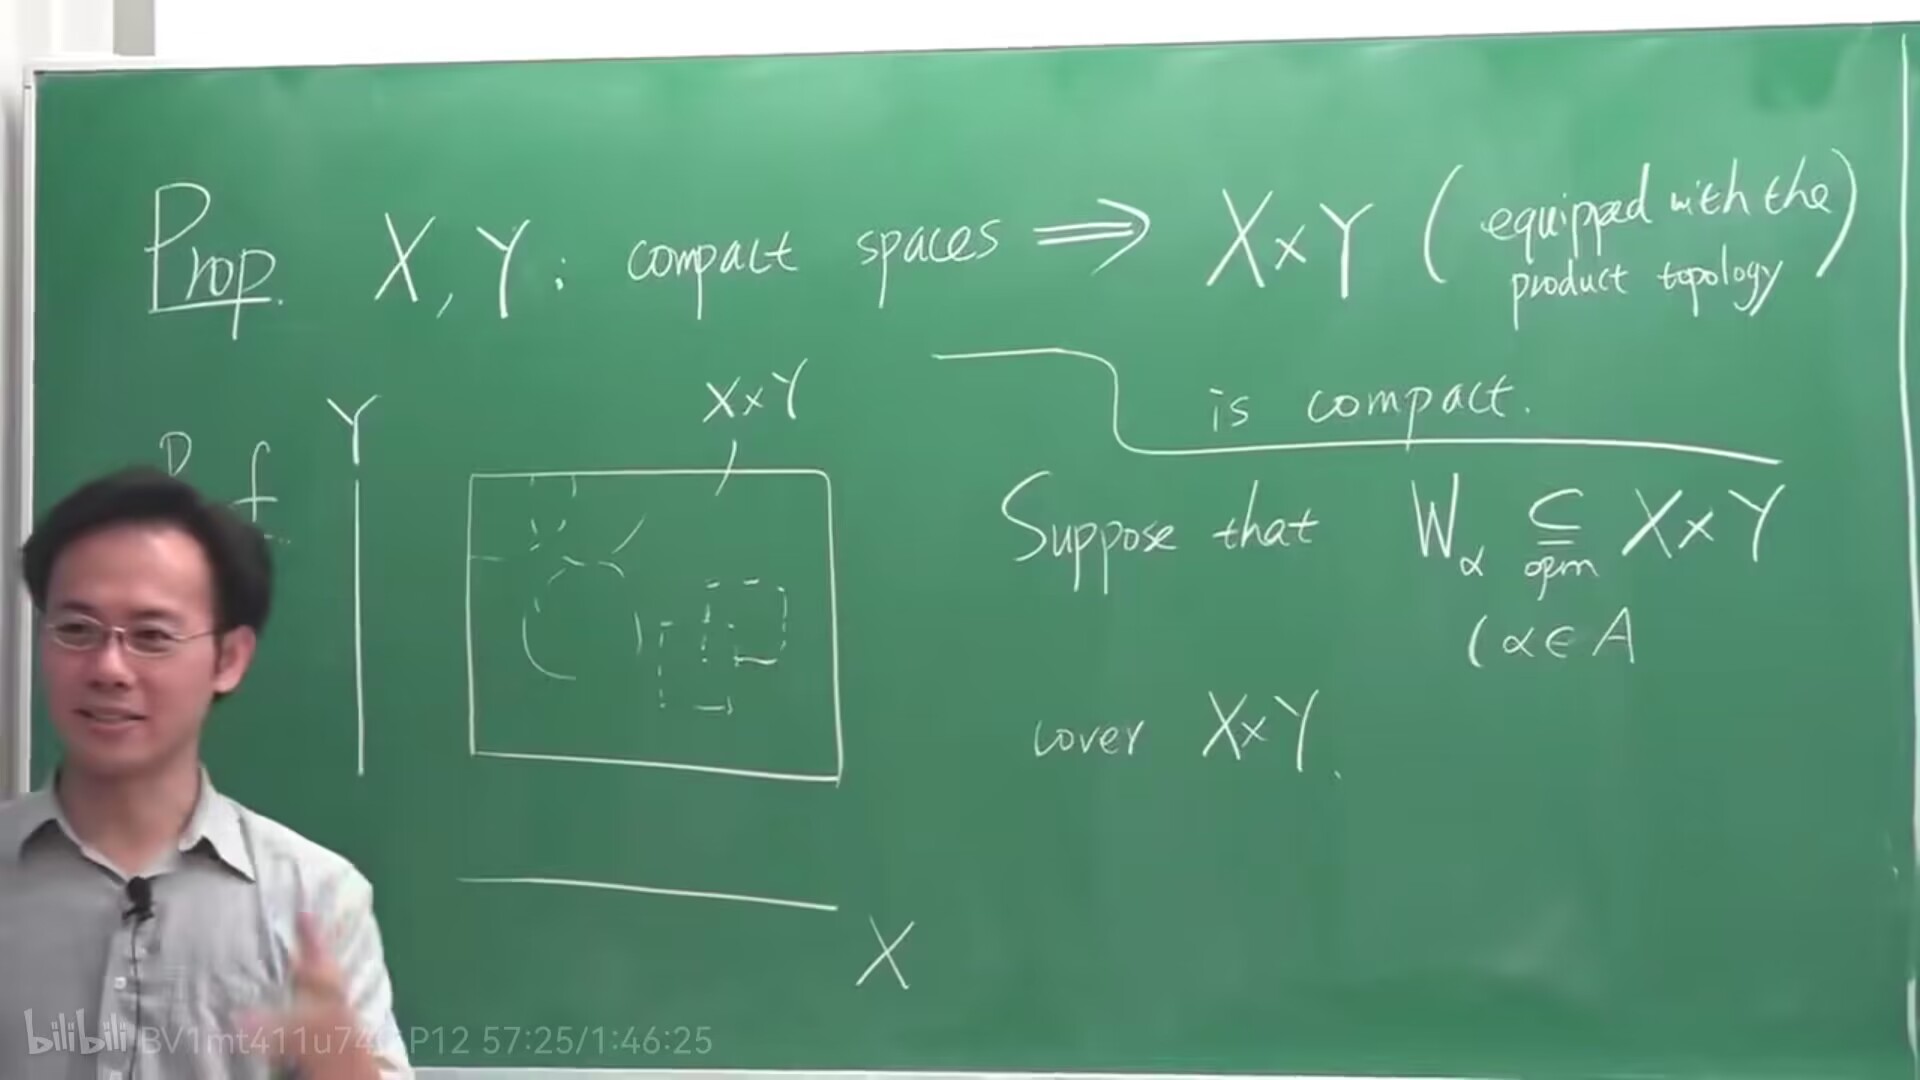 Prop. X, Y : compact spaces ⟹ X×Y (equipped with the product topology)
is compact.
Y
X×Y
X
Suppose that Wα ⊆ X×Y
open
(α∈A
cover X×Y.
bilibili BV1mt411u74 P12 57:25/1:46:25